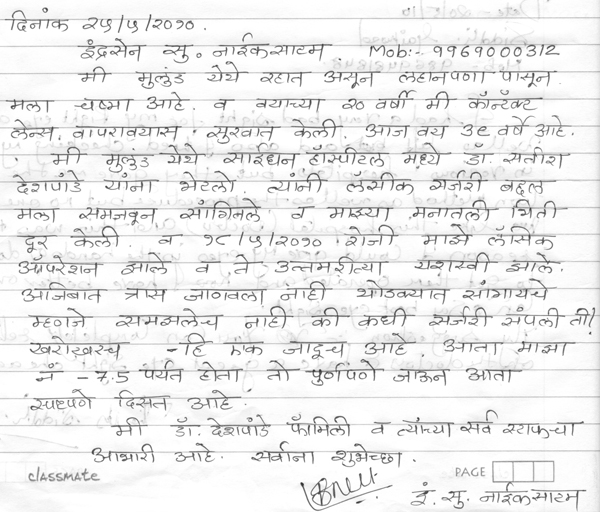 दिनांक २५/५/२०१०.
इंद्रसेन सु. नाईकसाटम Mob:- 9969000312
मी मुलुंड येथे रहात असून लहानपणा पासून
मला चष्मा आहे. व वयाच्या २० वर्षी मी कॉन्टॅक्ट
लेन्स. वापरावयास सुरवात केली. आज वय ३६ वर्षे आहे.
मी मुलुंड येथे साईधन हॉस्पीटल मध्ये डॉ. सतीश
देशपांडे यांना भेटलो. त्यांनी लॅसीक सर्जरी बद्दल
मला समजवून सांगितले व माझ्या मनातली भिती
दूर केली. व १८/५/२०१० रोजी माझे लॅसिक
ऑपरेशन झाले व ते उत्तमरीत्या यशस्वी झाले.
अजिबात त्रास जाणवला नाही थोडक्यात सांगायचे
म्हणजे समझलेच नाही की कधी सर्जरी संपली ती!
खरोखरच - हि एक जादूच आहे. आता माझा
नं -7.5 पर्यंत होता तो पुर्णपणे जाऊन आता
स्पष्टपणे दिसत आहे.
मी डॉ. देशपांडे फॅमिली व त्यांच्या सर्व स्टाफचा
आभारी आहे. सर्वाना शुभेच्छा.
classmate PAGE
इं. सु. नाईकसाटम